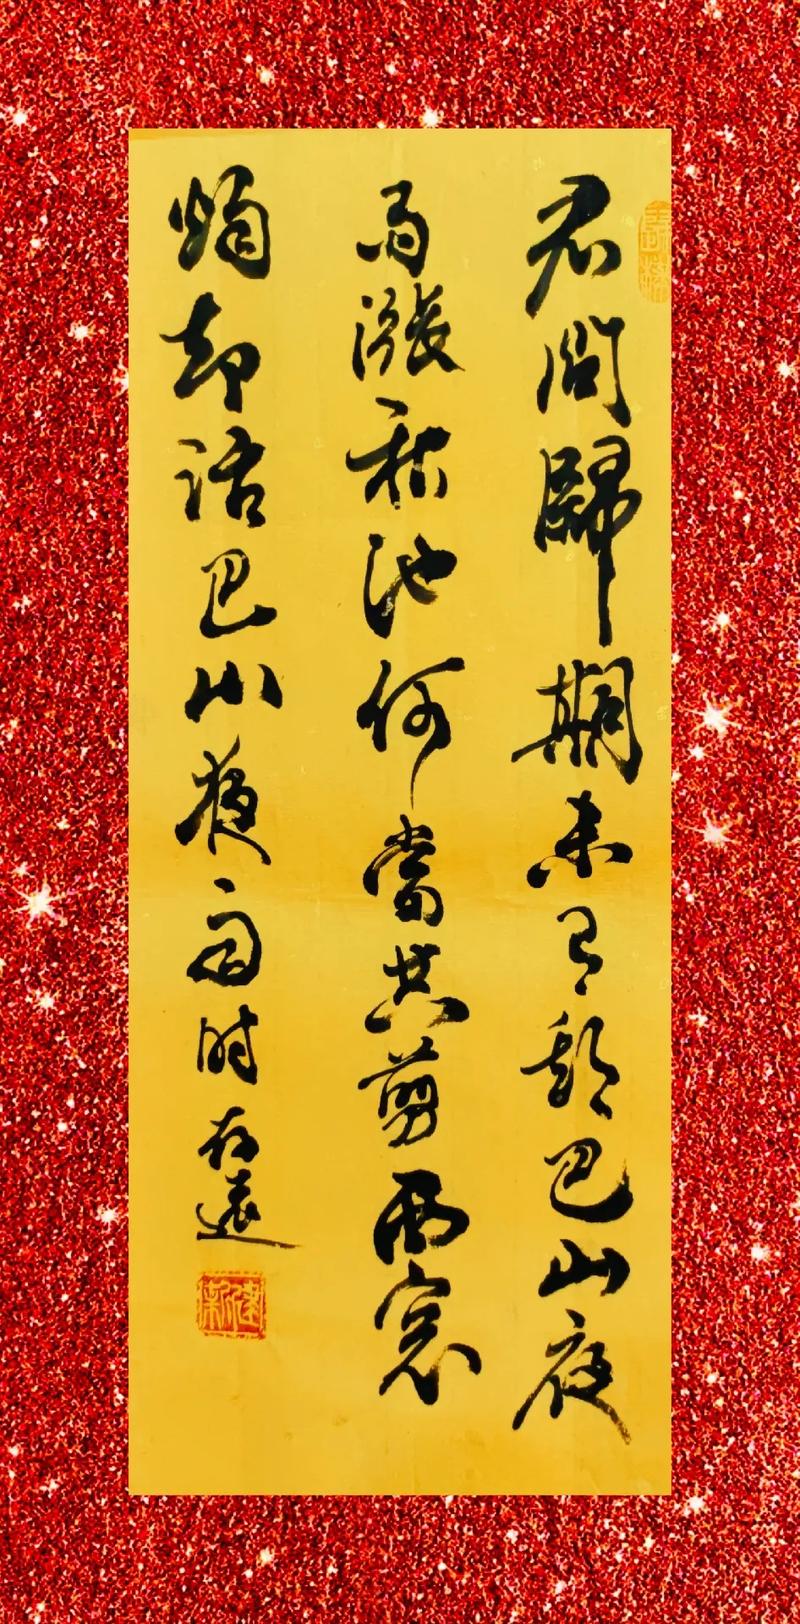 君問歸期未有期巴山夜
雨漲秋池何當共剪西窗
燭却話巴山夜雨時 存遠
建新